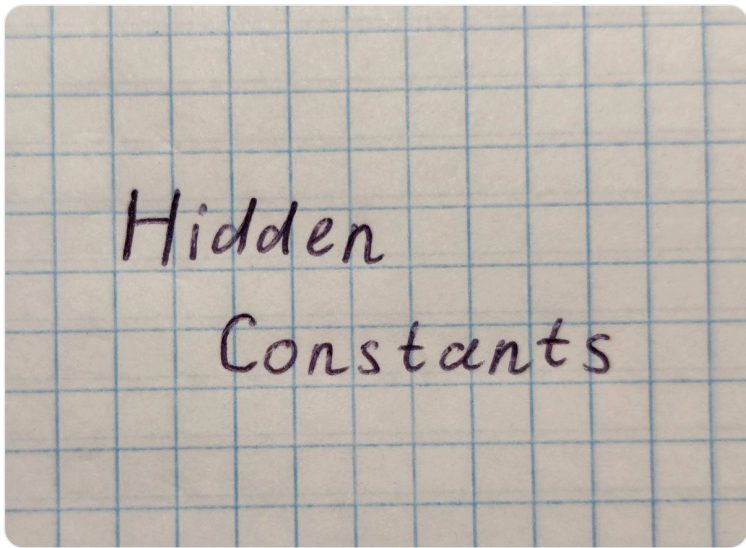 Hidden
Constants